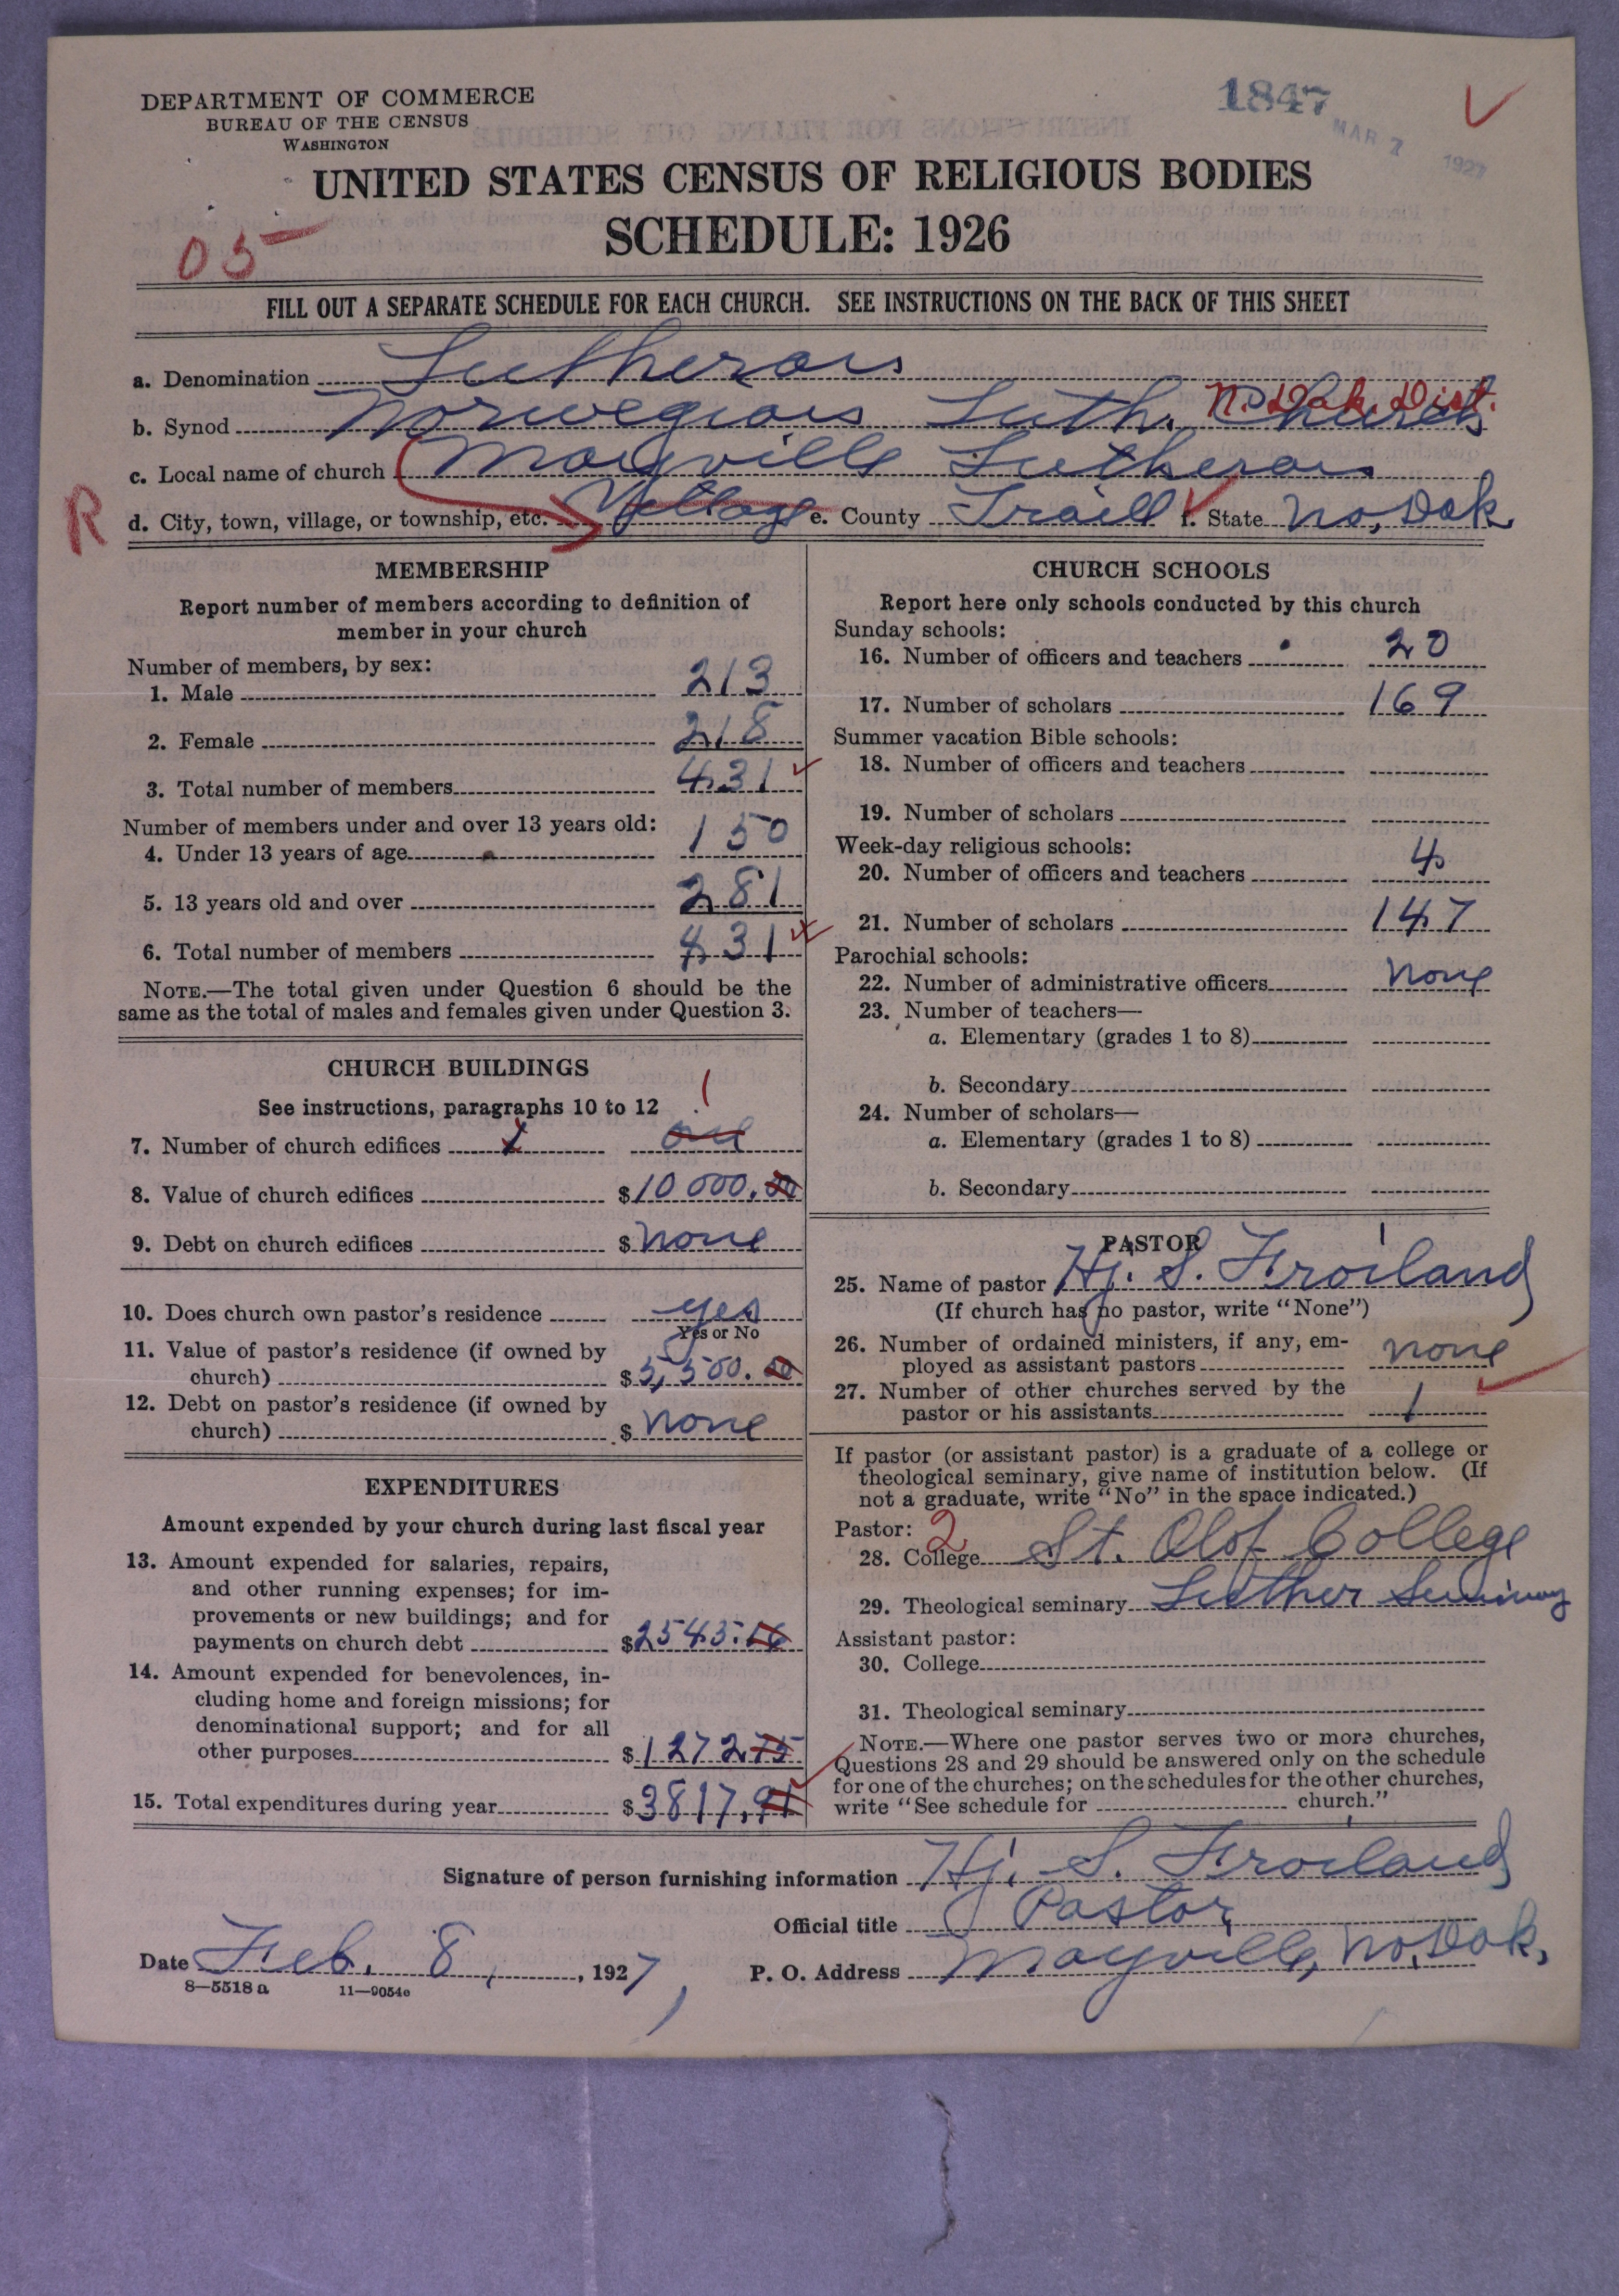 DEPARTMENT OF COMMERCE
BUREAU OF THE CENSUS
WASHINGTON
1847
MAR 7 1927
UNITED STATES CENSUS OF RELIGIOUS BODIES
SCHEDULE: 1926
05
FILL OUT A SEPARATE SCHEDULE FOR EACH CHURCH. SEE INSTRUCTIONS ON THE BACK OF THIS SHEET
a. Denomination Lutheran
N. Dak. Dist.
b. Synod Norwegian Luth. Church
c. Local name of church Mayville Lutheran
R
d. City, town, village, or township, etc. Village e. County Traill f. State No. Dak
MEMBERSHIP
Report number of members according to definition of
member in your church
Number of members, by sex:
1. Male 213
2. Female 218
3. Total number of members 431
Number of members under and over 13 years old:
4. Under 13 years of age 150
5. 13 years old and over 281
6. Total number of members 431
NOTE.—The total given under Question 6 should be the
same as the total of males and females given under Question 3.
CHURCH BUILDINGS
See instructions, paragraphs 10 to 12
1
7. Number of church edifices 1 one
8. Value of church edifices $10 000.00
9. Debt on church edifices $ none
10. Does church own pastor's residence yes
Yes or No
11. Value of pastor's residence (if owned by
church) $5,500.00
12. Debt on pastor's residence (if owned by
church) $ none
EXPENDITURES
Amount expended by your church during last fiscal year
13. Amount expended for salaries, repairs,
and other running expenses; for im-
provements or new buildings; and for
payments on church debt $2545.16
14. Amount expended for benevolences, in-
cluding home and foreign missions; for
denominational support; and for all
other purposes $1272.75
15. Total expenditures during year $3817.91
CHURCH SCHOOLS
Report here only schools conducted by this church
Sunday schools:
16. Number of officers and teachers 20
17. Number of scholars 169
Summer vacation Bible schools:
18. Number of officers and teachers
19. Number of scholars
Week-day religious schools:
20. Number of officers and teachers 4
21. Number of scholars 147
Parochial schools:
22. Number of administrative officers none
23. Number of teachers—
a. Elementary (grades 1 to 8)
b. Secondary
24. Number of scholars—
a. Elementary (grades 1 to 8)
b. Secondary
PASTOR
25. Name of pastor Hj. S. Froiland
(If church has no pastor, write "None")
26. Number of ordained ministers, if any, em-
ployed as assistant pastors none
27. Number of other churches served by the
pastor or his assistants 1
If pastor (or assistant pastor) is a graduate of a college or
theological seminary, give name of institution below. (If
not a graduate, write "No" in the space indicated.)
Pastor: 2
28. College St. Olof College
29. Theological seminary Luther Seminary
Assistant pastor:
30. College
31. Theological seminary
NOTE.—Where one pastor serves two or more churches,
Questions 28 and 29 should be answered only on the schedule
for one of the churches; on the schedules for the other churches,
write "See schedule for church."
Signature of person furnishing information Hj. S. Froiland
Official title Pastor
Date Feb. 8, 1927, P. O. Address Mayville, No. Dak.
8—5518 a 11—9054e